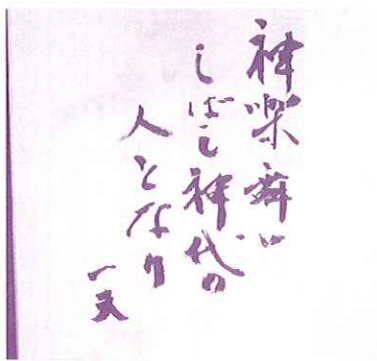 神楽舞い
しばし神代の
人となり
一天